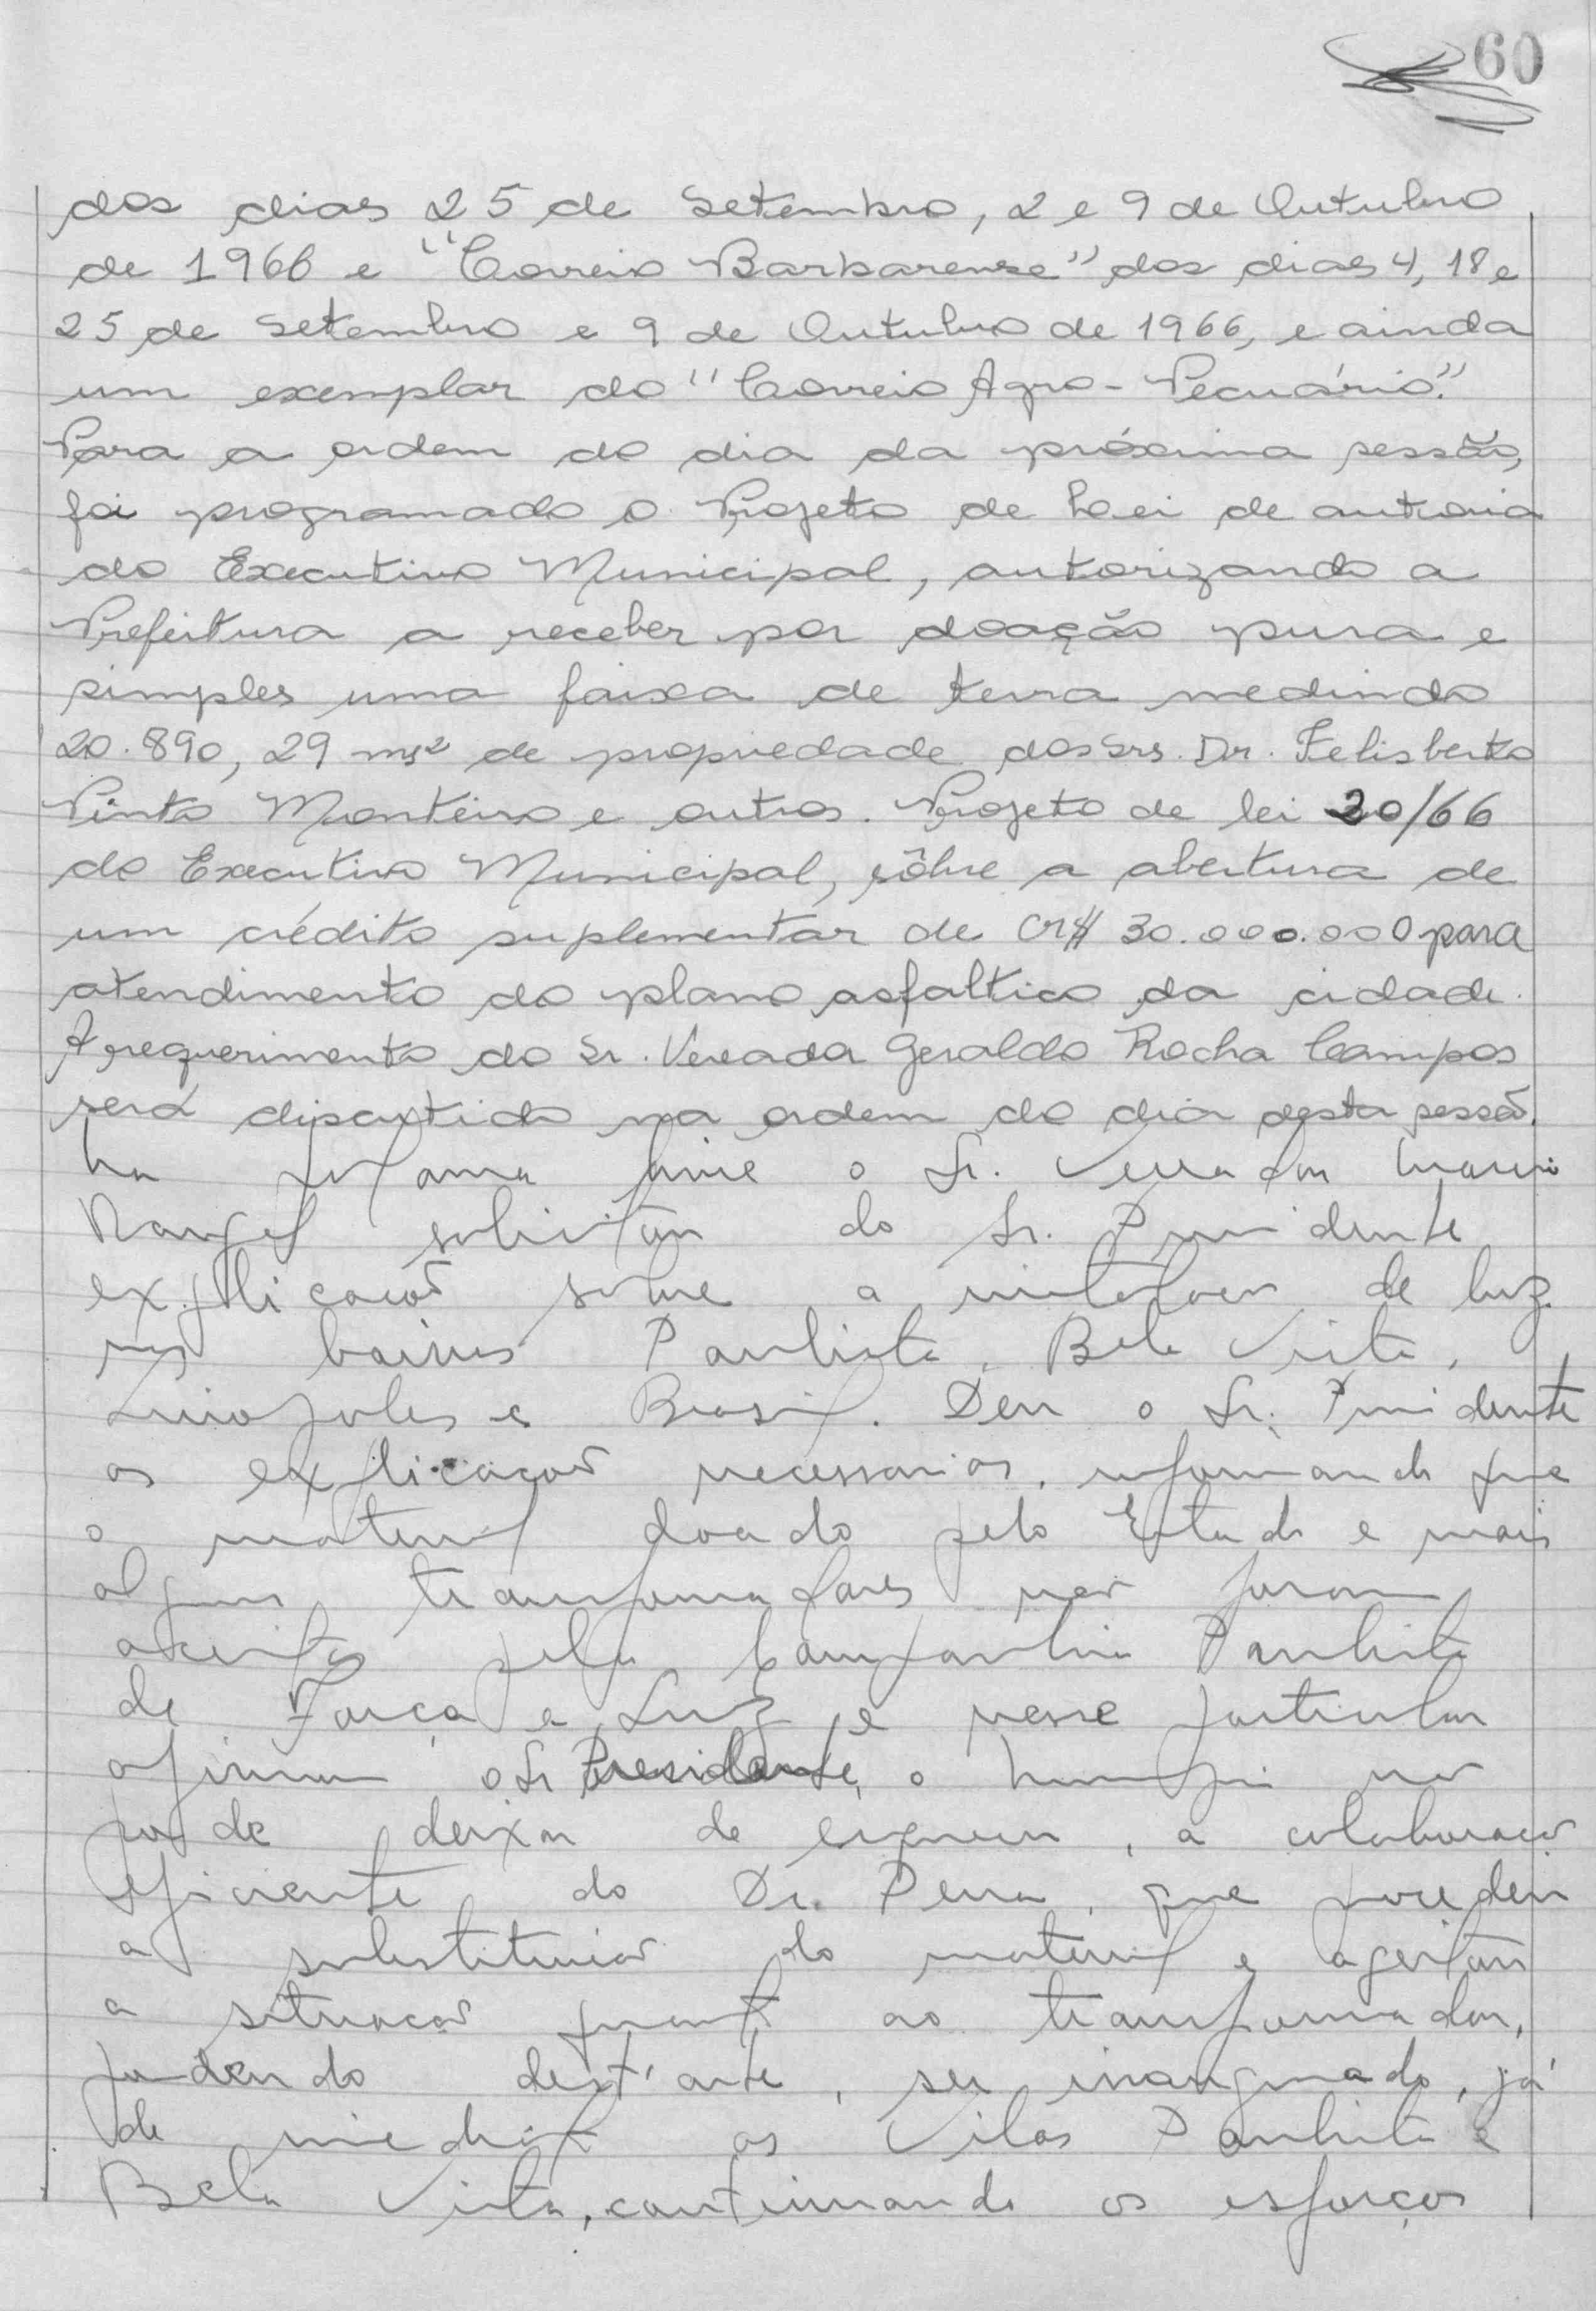 60
dos dias 25 de Setembro, 2 e 9 de Outubro
de 1966 e "Correio Barbarense" dos dias 4, 18 e
25 de Setembro e 9 de Outubro de 1966, e ainda
um exemplar do "Correio Agro-Pecuário".
Para a ordem do dia da próxima sessão,
foi programado o Projeto de Lei de autoria
do Executivo Municipal, autorizando a
Prefeitura a receber por doação pura e
simples uma faixa de terra medindo
20.890,29 ms² de propriedade dos Srs. Dr. Felisberto
Pinto Monteiro e outros. Projeto de lei 20/66
do Executivo Municipal, sôbre a abertura de
um crédito suplementar de CR$ 30.000.000 para
atendimento do plano asfaltico da cidade.
A requerimento do Sr. Vereador Geraldo Rocha Campos
será discutido na ordem do dia desta sessão.
o Sr. Vereador
Rangel solicitou do Sr. Presidente
explicações sobre a instalação de luz
nos bairros Paulista, Bela Vista,
e Brasil. Deu o Sr. Presidente
as explicações necessarias, informando que
o material doado pelo Estado e mais
alguns transformadores não foram
aceitos pela Companhia Paulista
de Força e Luz e nesse particular
afirmou o Sr Presidente, o não
pode deixar de , a colaboração
eficiente do Dr. Pena, que procedeu
a substituição do material e ageitou
a situação quanto ao transformador,
podendo dest'arte, ser inaugurado, já
de imediato as Vilas Paulista e
Bela Vista, continuando os esforços